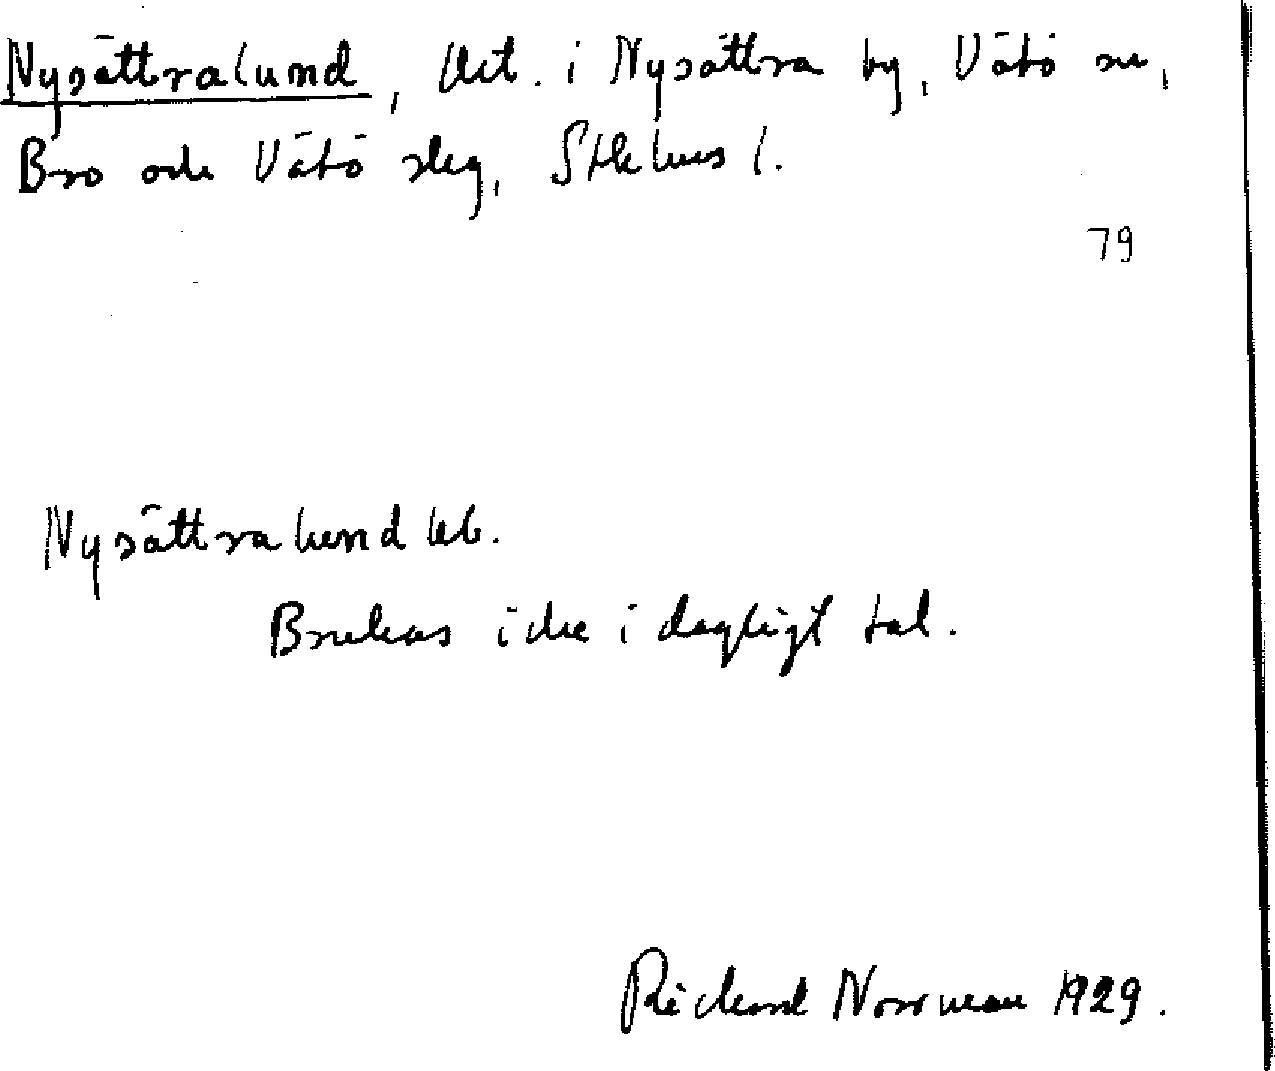 Nysättralund, Vit. i Nysättra by, Vätö sn,
Bro och Vätö slag, Sthlms l.
79
Nysättralund kb.
Brukas icke i dagligt tal.
Richard Norrman 1929.